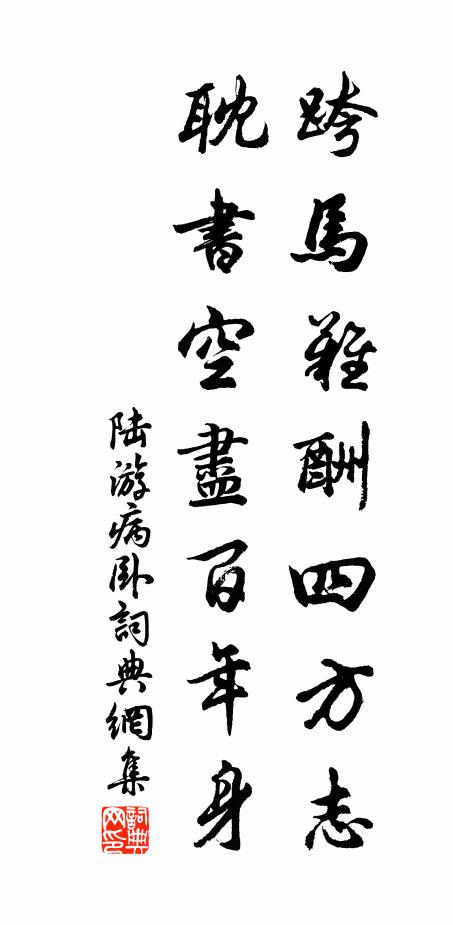 跨馬難酬四方志
耽書空盡百年身
陆游病卧詞典網集
詞典网印